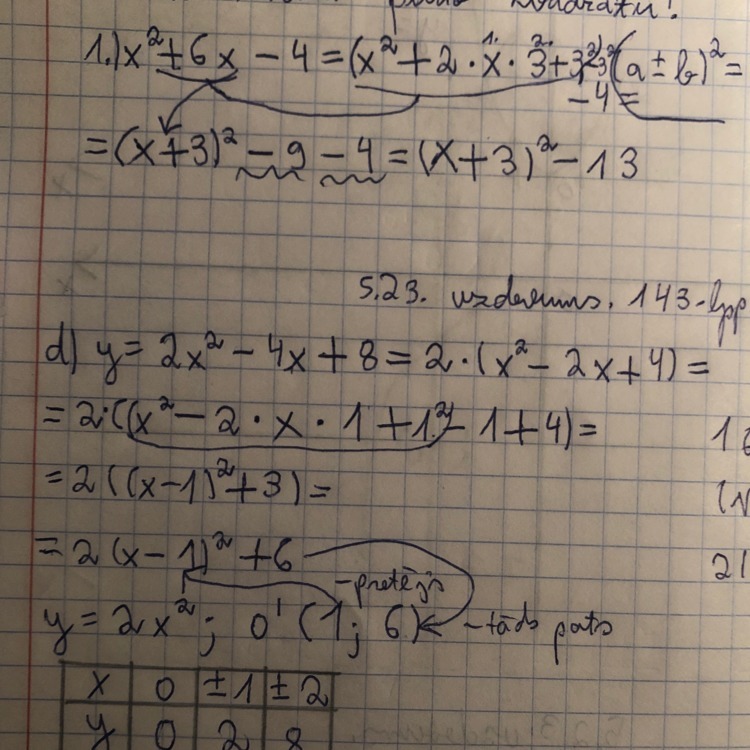 kvadrātu!
1.) x² + 6x - 4 = (x² + 2 · x · 3 + 3²) (a ± b)² =
- 4 =
= (x + 3)² - 9 - 4 = (x + 3)² - 13
5.23. uzdevums. 143. lpp
d) y = 2x² - 4x + 8 = 2 · (x² - 2x + 4) =
= 2 · ((x² - 2 · x · 1 + 1²) - 1 + 4) =
= 2 ((x - 1)² + 3) =
= 2 (x - 1)² + 6
- pretējs
y = 2x²; 0' (1; 6) - tāds pats
x 0 ±1 ±2
y 0 2 8